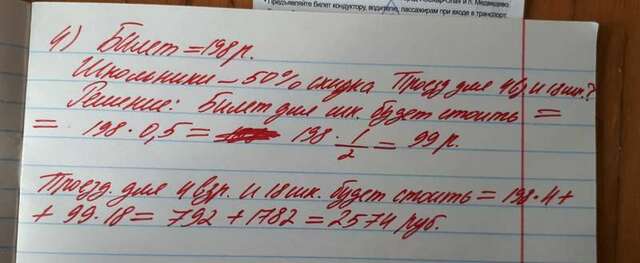 • Предъявляйте билет кондуктору, водителю, пассажирам при входе в транспорт
4) Билет = 198 р.
Школьники – 50% скидка Проезд для 4 вз и 18 шк.?
Решение: Билет для шк. будет стоить =
= 198 · 0,5 = 198 · 1/2 = 99 р.
Проезд для 4 взр. и 18 шк. будет стоить = 198·4+
+ 99·18 = 792 + 1782 = 2574 руб.